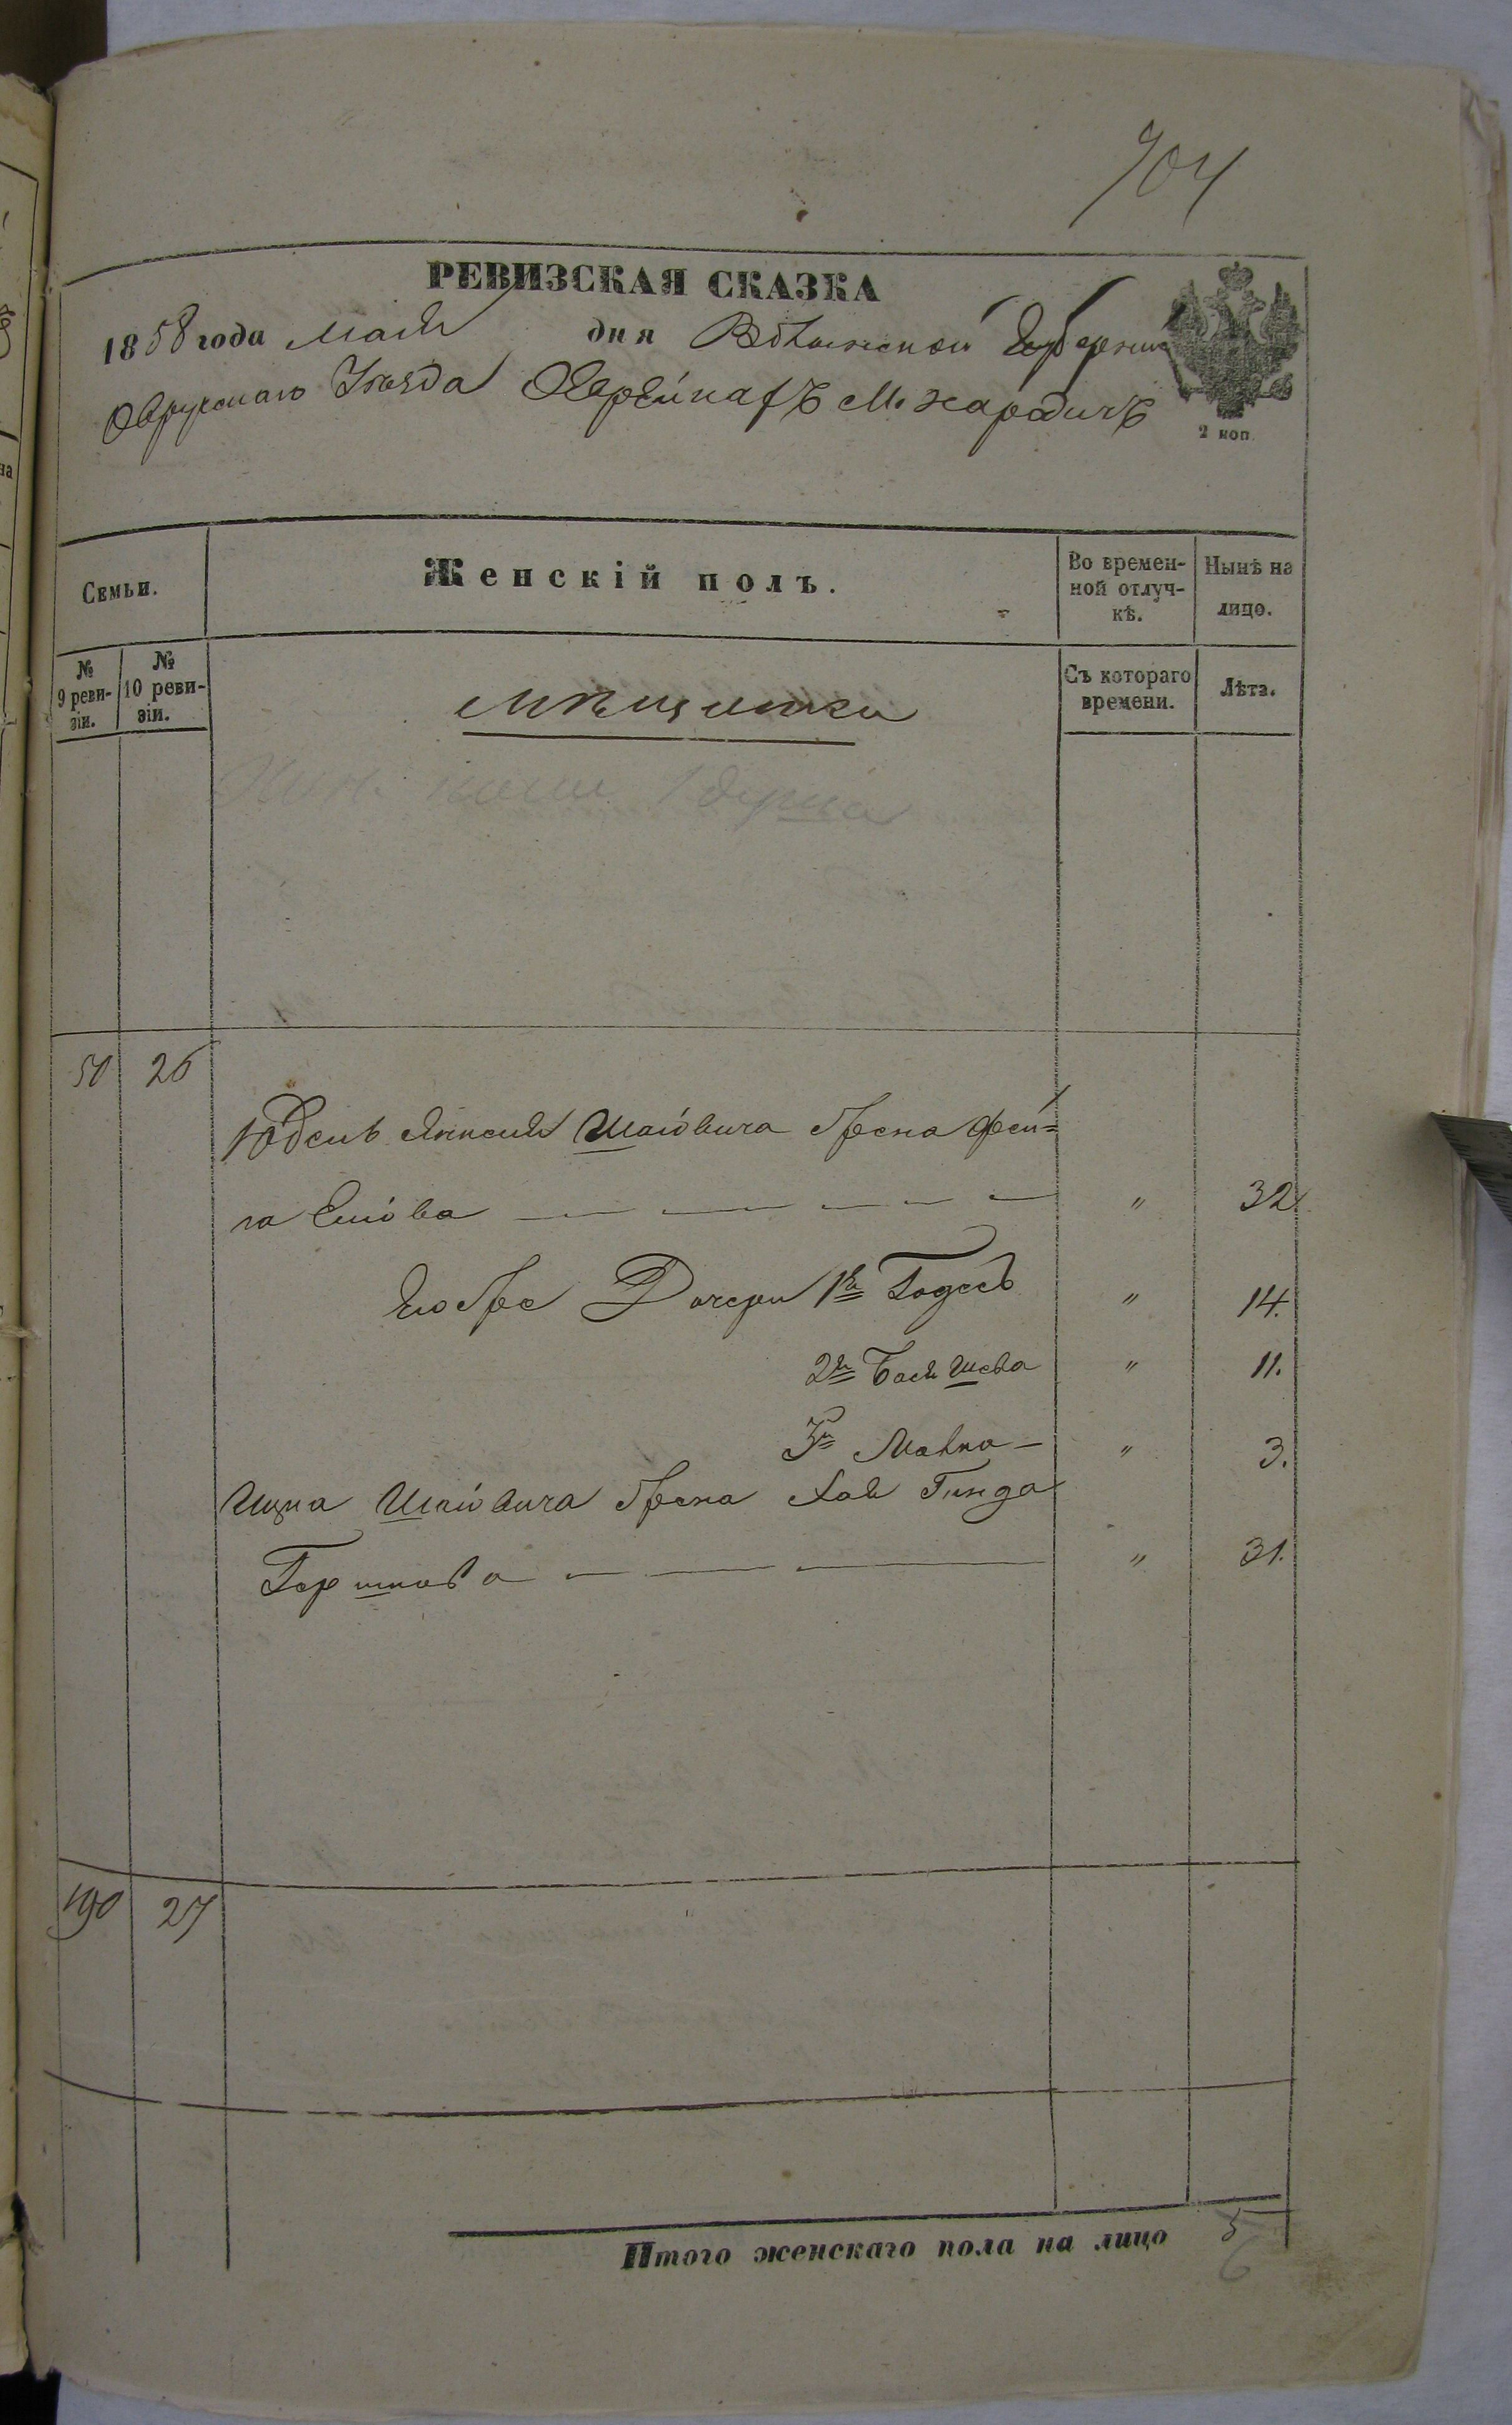 904
РЕВИЗСКАЯ СКАЗКА
1858 года мая дня Волынской Губернии
Овручскаго Уѣзда м. Народичъ
2 коп
Семьи.
Женскій полъ.
Во времен-
ной отлуч-
кѣ.
Нынѣ на
лицо.
№
9 реви-
зіи.
№
10 реви-
зіи.
Мѣщанки
Съ котораго
времени.
Лѣта.
50 26
Шаіовича жена Фей-
га " 32
Его же Дочери 1я Годесъ " 14.
2я Бася Шева " 11.
3я Малка " 3.
Ицка Шаіовича жена Хая Гинда
Гершкова " 31.
190 27
Итого женскаго пола на лицо 5
6